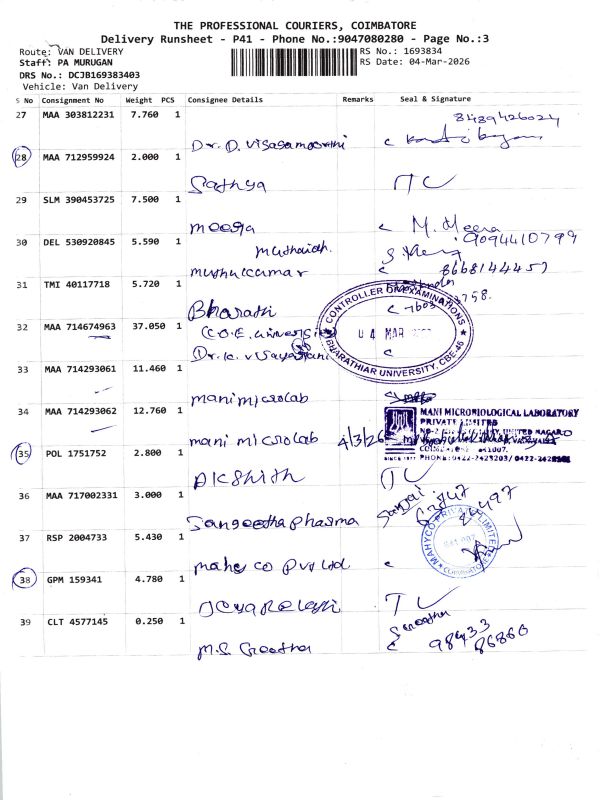 THE PROFESSIONAL COURIERS, COIMBATORE
Delivery Runsheet - P41 - Phone No.:9047080280 - Page No.:3
Route: VAN DELIVERY RS No.: 1693834
Staff: PA MURUGAN RS Date: 04-Mar-2026
DRS No.: DCJB169383403
Vehicle: Van Delivery
S No Consignment No Weight PCS Consignee Details Remarks Seal & Signature
27 MAA 303812231 7.760 1
8489426024
Dr. D. Visagamoorthi
28 MAA 712959924 2.000 1
Sathya TC
29 SLM 390453725 7.500 1
meera M. Meera
30 DEL 530920845 5.590 1 9094410799
Muthaiah
muthukumar 8668144457
31 TMI 40117718 5.720 1
Bharath
32 MAA 714674963 37.050 1
C.O.E. universi
Dr. K. v
CONTROLLER OF EXAMINATIONS
04 MAR
BHARATHIAR UNIVERSITY, CBE-46
33 MAA 714293061 11.460 1
mani microlab
34 MAA 714293062 12.760 1
mani microlab 4/3/26
MANI MICROBIOLOGICAL LABORATORY
PRIVATE LIMITED
35 POL 1751752 2.800 1
TC
36 MAA 717002331 3.000 1
Sangeetha pharma
37 RSP 2004733 5.430 1
maheco Pvt Ltd
MAHYCO PRIVATE LIMITED
COIMBATORE
38 GPM 159341 4.780 1
TC
39 CLT 4577145 0.250 1
98433
86860
M.S. Geetha